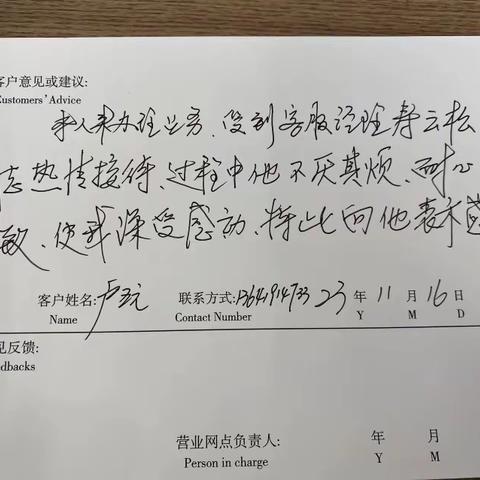 客户意见或建议:
Customers' Advice
本人来办理业务、受到客服经理寿云松
志热情接待、过程中他不厌其烦、耐心
致、使我深受感动、特此向他表示感
客户姓名: 卢 联系方式: 23 年 11 月 16 日
Name Contact Number Y M D
见反馈:
edbacks
营业网点负责人: 年 月
Person in charge Y M